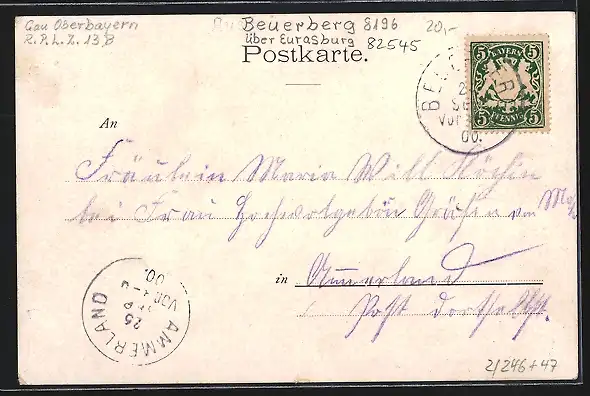 Gau Oberbayern
R.P.L.Z. 13 B
Beuerberg 8196
über Eurasburg 82545
20,-
Postkarte.
BAYERN
5 5
5 PFENNIG 5
VOR
00.
An
Fräulein Maria Will Köchin
bei Frau Hochwolgebor. Gräfin von
in Ammerland
Post dortselbst.
AMMERLAND
25
SEP
VOR
00.
2/246+47